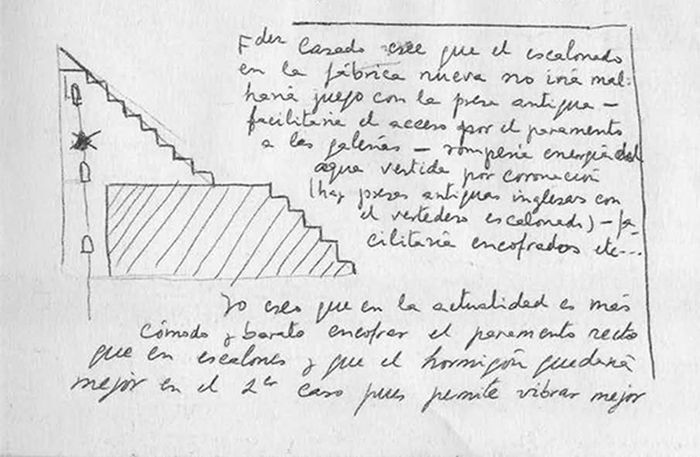 Fder Casado cree que el escalonado
en la fábrica nueva no iría mal:
haría juego con la presa antigua -
facilitaría el acceso por el paramento
a las galerías - rompería energía del
agua vertida por coronación
(hay presas antiguas inglesas con
el vertedero escalonado) - fa-
cilitaría encofrados etc...
Yo creo que en la actualidad es más
cómodo y barato encofrar el paramento recto
que en escalones y que el hormigón quedaría
mejor en el 2er caso pues permite vibrar mejor